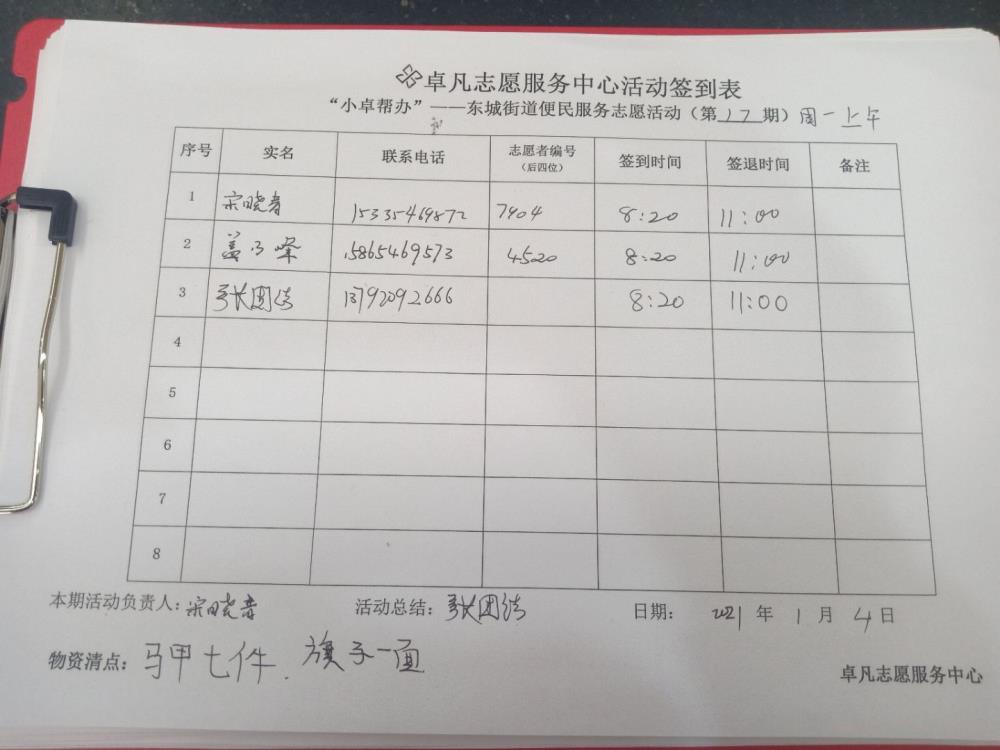 卓凡志愿服务中心活动签到表
“小卓帮办”——东城街道便民服务志愿活动（第17期）周一上午
序号 实名 联系电话 志愿者编号（后四位） 签到时间 签退时间 备注
1 宋晓春 15335469872 7904 8:20 11:00
2 盖乃峰 15865469573 4520 8:20 11:00
3 张团结 13792092666 8:20 11:00
4
5
6
7
8
本期活动负责人：宋晓春 活动总结：张团结 日期：2021年1月4日
物资清点：马甲七件．旗子一面
卓凡志愿服务中心